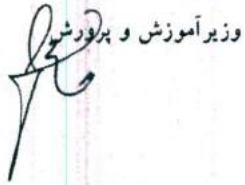 وزیر آموزش و پرورش